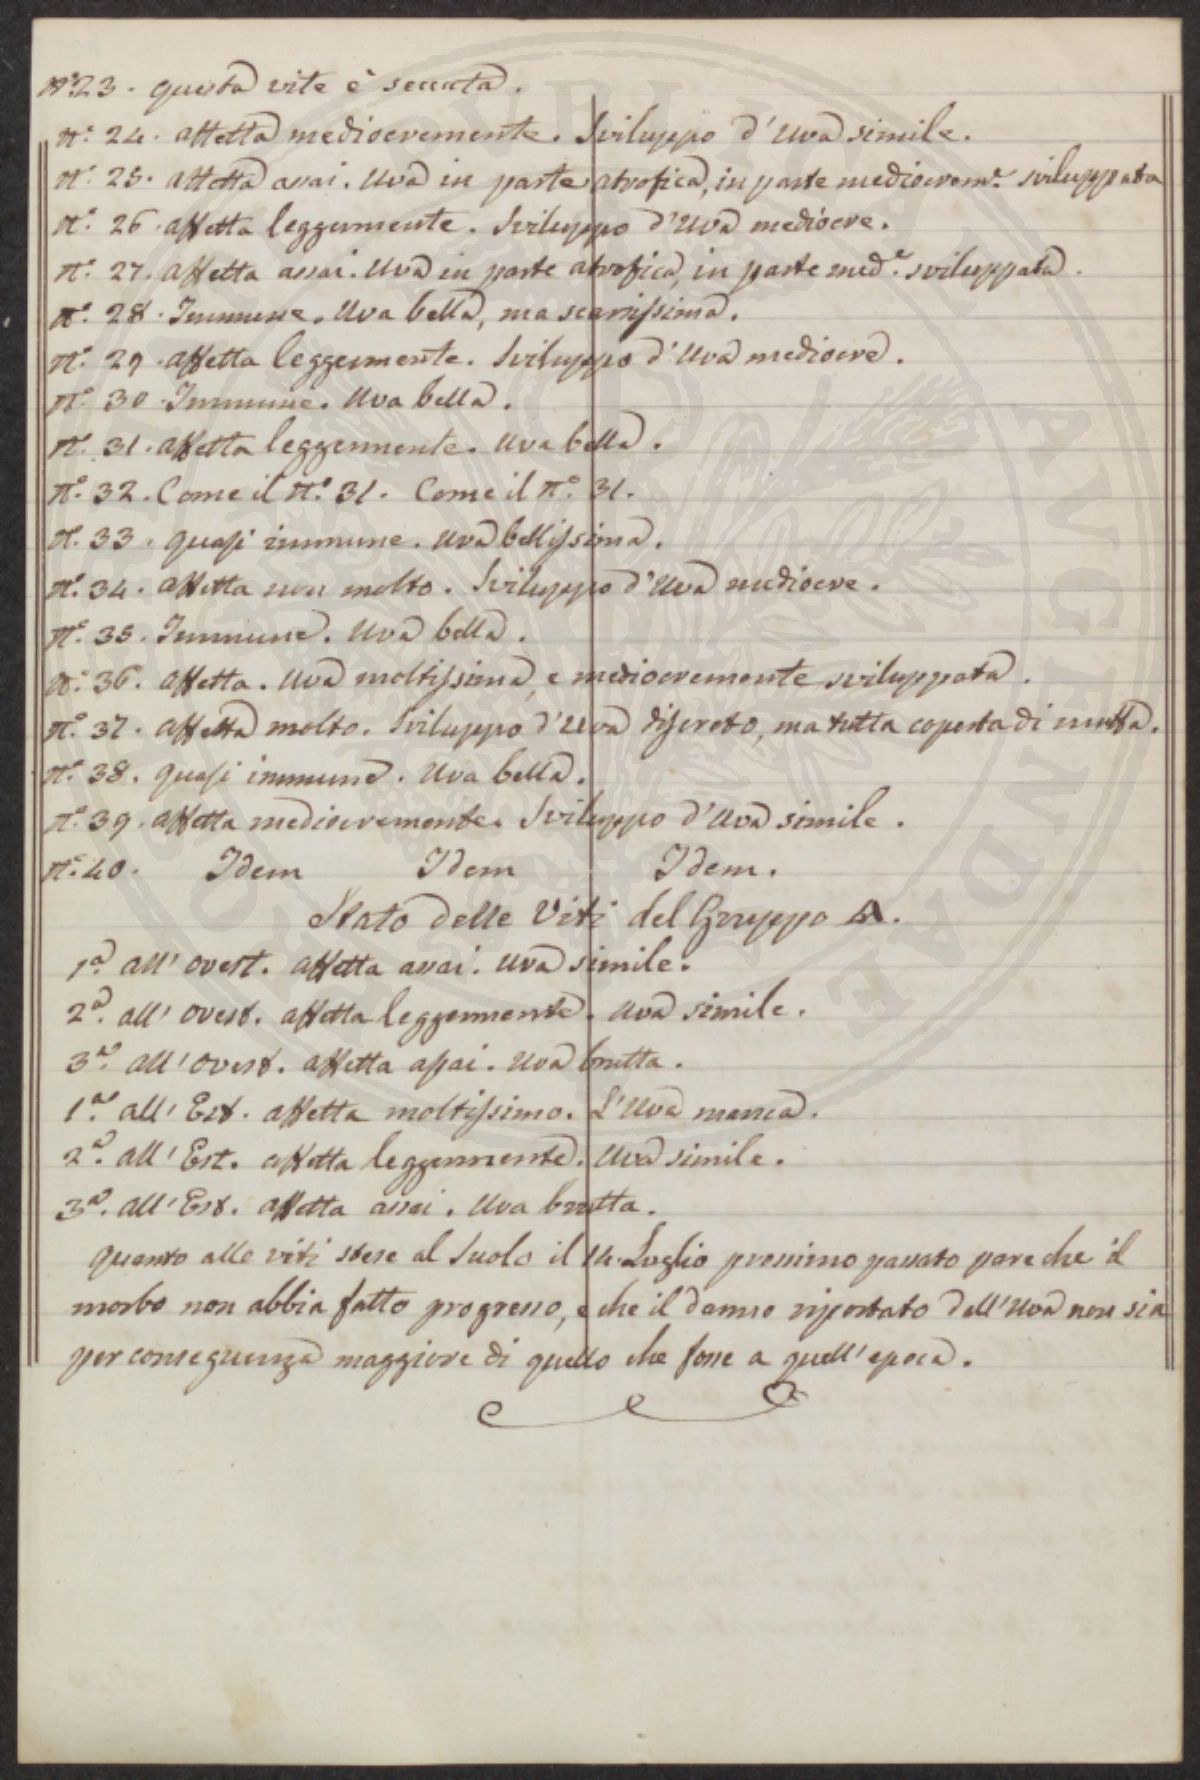 N.º 23. questa vite è seccata.
N.º 24. affetta mediocremente. Sviluppo d'Uva simile.
N.º 25. affetta assai. Uva in parte atrofica, in parte mediocrem.e sviluppata
N.º 26. affetta leggermente. Sviluppo d'Uva mediocre.
N.º 27. affetta assai. Uva in parte atrofica, in parte med.e sviluppata.
N.º 28. Immune. Uva bella, ma scarsissima.
N.º 29. affetta leggermente. Sviluppo d'Uva mediocre.
N.º 30. Immune. Uva bella.
N.º 31. affetta leggermente. Uva bella.
N.º 32. Come il N.º 31. Come il N.º 31.
N.º 33. quasi immune. Uva bellissima.
N.º 34. affetta non molto. Sviluppo d'Uva mediocre.
N.º 35. Immune. Uva bella.
N.º 36. affetta. Uva moltissima, e mediocremente sviluppata.
N.º 37. affetta molto. Sviluppo d'Uva discreto, ma tutta coperta di muffa.
N.º 38. quasi immune. Uva bella.
N.º 39. affetta mediocremente. Sviluppo d'Uva simile.
N.º 40. Idem Idem Idem.
Stato delle Viti del Gruppo A.
1.a all'ovest. affetta assai. Uva simile.
2.a all'ovest. affetta leggermente. Uva simile.
3.a all'ovest. affetta assai. Uva brutta.
1.a all'Est. affetta moltissimo. L'Uva manca.
2.a all'Est. affetta leggermente. Uva simile.
3.a all'Est. affetta assai. Uva brutta.
Quanto alle viti stese al suolo il 14 Luglio prossimo passato pare che il
morbo non abbia fatto progresso, e che il danno riportato dell'Uva non sia
per conseguenza maggiore di quello che fosse a quell'epoca.